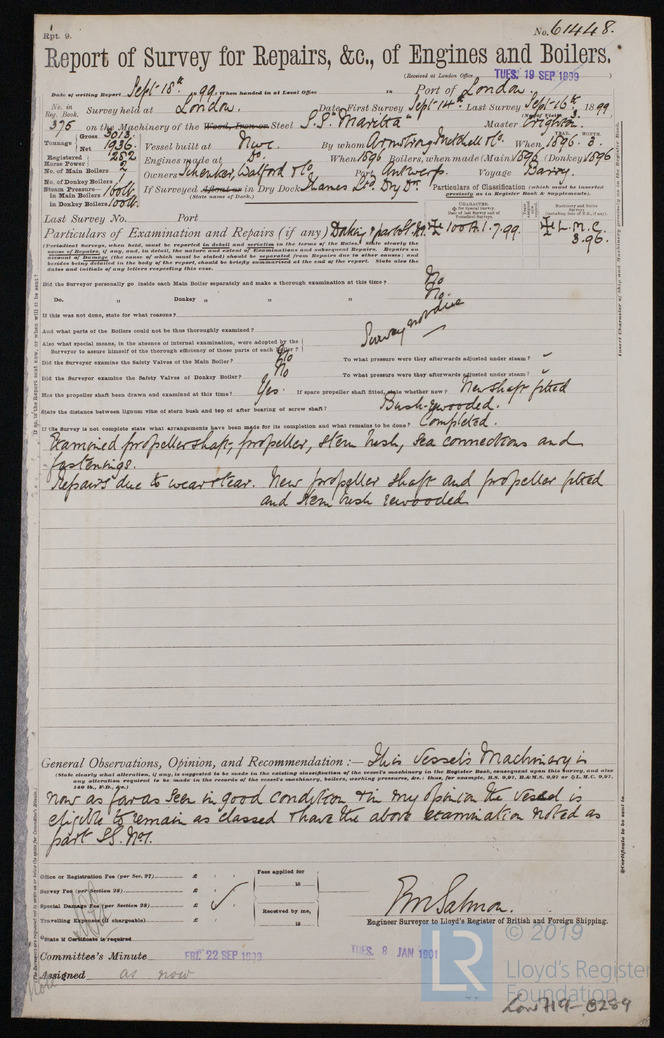 Rpt. 9.
No. 61448.
Report of Survey for Repairs, &c., of Engines and Boilers.
(Received at London Office TUES. 19 SEP 1899 )
Date of writing Report Sept 18th 99 When handed in at Local Office 18 Port of London
No. in Reg. Book. Survey held at London. Date, First Survey Sept 14th Last Survey Sept 15th 1899
(No. of Visits 3.
375 on the Machinery of the Wood, Iron or Steel S.S. "Maritta" Master Crighton.
Tonnage Gross 3013. Net 1936. Vessel built at Nwc. By whom Armstrong Mitchell & Co. When YEAR. 1896. MONTH. 3.
Registered Horse Power 282 Engines made at Do. When 1896 Boilers, when made (Main) 1896 (Donkey) 1896
No. of Main Boilers 2 Owners Schenker, Walford & Co. Port Antwerp. Voyage Barry.
No. of Donkey Boilers 1
Steam Pressure— in Main Boilers 160 lb. If Surveyed Afloat or in Dry Dock Thames Co. Dry Dk.
in Donkey Boilers 100 lb. (State name of Dock.)
Particulars of Classification (which must be inserted precisely as in Register Book & Supplements).
Last Survey No. Port
Particulars of Examination and Repairs (if any) Dokg & part
✠ 100A1. 7.99.
✠ L.M.C. 3.96.
(Periodical Surveys, when held, must be reported in detail and seriatim in the terms of the Rules, state clearly the
name of Repairs, if any, and, in detail, the nature and extent of Examinations and subsequent Repairs. Repairs on
account of Damage (the cause of which must be stated) should be separated from Repairs due to other causes; and
besides being detailed in the body of the report, should be briefly summarised at the end of the report. State also the
dates and initials of any letters respecting this case.
Did the Surveyor personally go inside each Main Boiler separately and make a thorough examination at this time? No
Do. „ Donkey „ „ „ No.
If this was not done, state for what reasons? Survey not due
And what parts of the Boilers could not be thus thoroughly examined?
Also what special means, in the absence of internal examination, were adopted by the
Surveyor to assure himself of the thorough efficiency of those parts of each Boiler?
Did the Surveyor examine the Safety Valves of the Main Boiler? No To what pressure were they afterwards adjusted under steam? –
Did the Surveyor examine the Safety Valves of Donkey Boiler? No To what pressure were they afterwards adjusted under steam? –
Has the propeller shaft been drawn and examined at this time? Yes. If spare propeller shaft fitted, state whether new? New shaft fitted
State the distance between lignum vitæ of stern bush and top of after bearing of screw shaft? Bush rewooded.
If the Survey is not complete state what arrangements have been made for its completion and what remains to be done? Completed.
Examined propeller shaft, propeller, stern bush, sea connections and
fastenings.
Repairs due to wear & tear. New propeller shaft and propeller fitted
and stern bush rewooded
General Observations, Opinion, and Recommendation :— This Vessel's Machinery is
(State clearly what alteration, if any, is suggested to be made in the existing classification of the vessel's machinery in the Register Book, consequent upon this Survey, and also
any alteration required to be made in the records of the vessel's machinery, boilers, working pressures, &c.; thus, for example, B.S. 9,97, B.&M.S. 9,97 or L.M.C. 9,97,
140 lb., F.D., &c.)
now as far as seen in good condition & in my opinion the vessel is
eligible to remain as classed & have the above examination noted as
part S.S. No. 1.
Office or Registration Fee (per Sec. 27) £
Survey Fee (per Section 28) £
Special Damage Fee (per Section 28) £
Travelling Expenses (if chargeable) £
Fees applied for
18
Received by me,
18
Salmon.
Engineer Surveyor to Lloyd's Register of British and Foreign Shipping.
State if Certificate is required
Committee's Minute FRI. 22 SEP 1899 TUES. 8 JAN 1901
Assigned as now
LR © 2019
Lloyd's Register
Foundation
Lon 719-0289